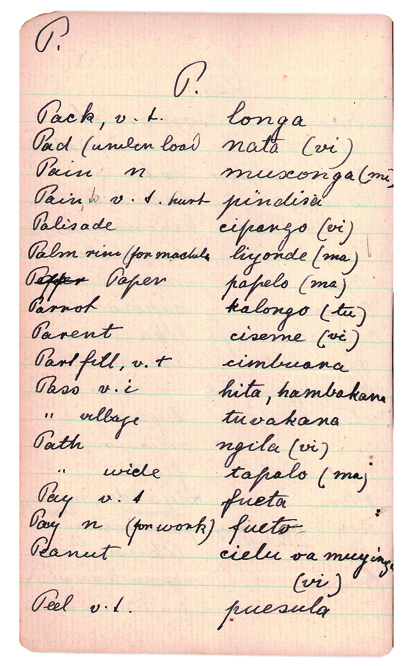 P.
P.
Pack, v. t. longa
Pad (under load) nata (vi)
Pain n muxonga (mi)
Pain, v. t. hurt pindisa
Palisade cipango (vi)
Palm rim (for machila liyonde (ma)
Paper papelo (ma)
Parrot kalongo (tu)
Parent ciseme (vi)
Part fill, v. t cimbuana
Pass v. i hita, hambakana
" village tuvakana
Path ngila (vi)
" wide tapalo (ma)
Pay v. t fueta
Pay n (for work) fueto
Peanut cielu va muyinga
(vi)
Peel v. t. puesula